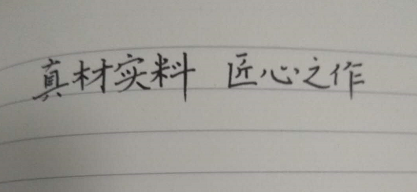 真材实料 匠心之作